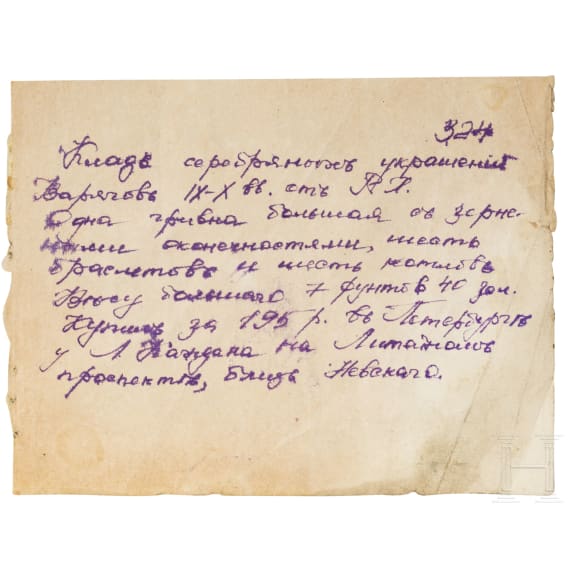 324
Кладъ серебряныхъ украшений
Варяговъ IX-X вв. отъ Р. Х.
Одна гривна большая съ зерне-
ными оконечностями, шесть
браслетовъ и шесть
Вѣсу большаго 7 фунтов 40 зол.
Купилъ за 195 р. въ Петербургѣ
у Л. Кагдана на Литейномъ
проспектѣ, близъ Невскаго.